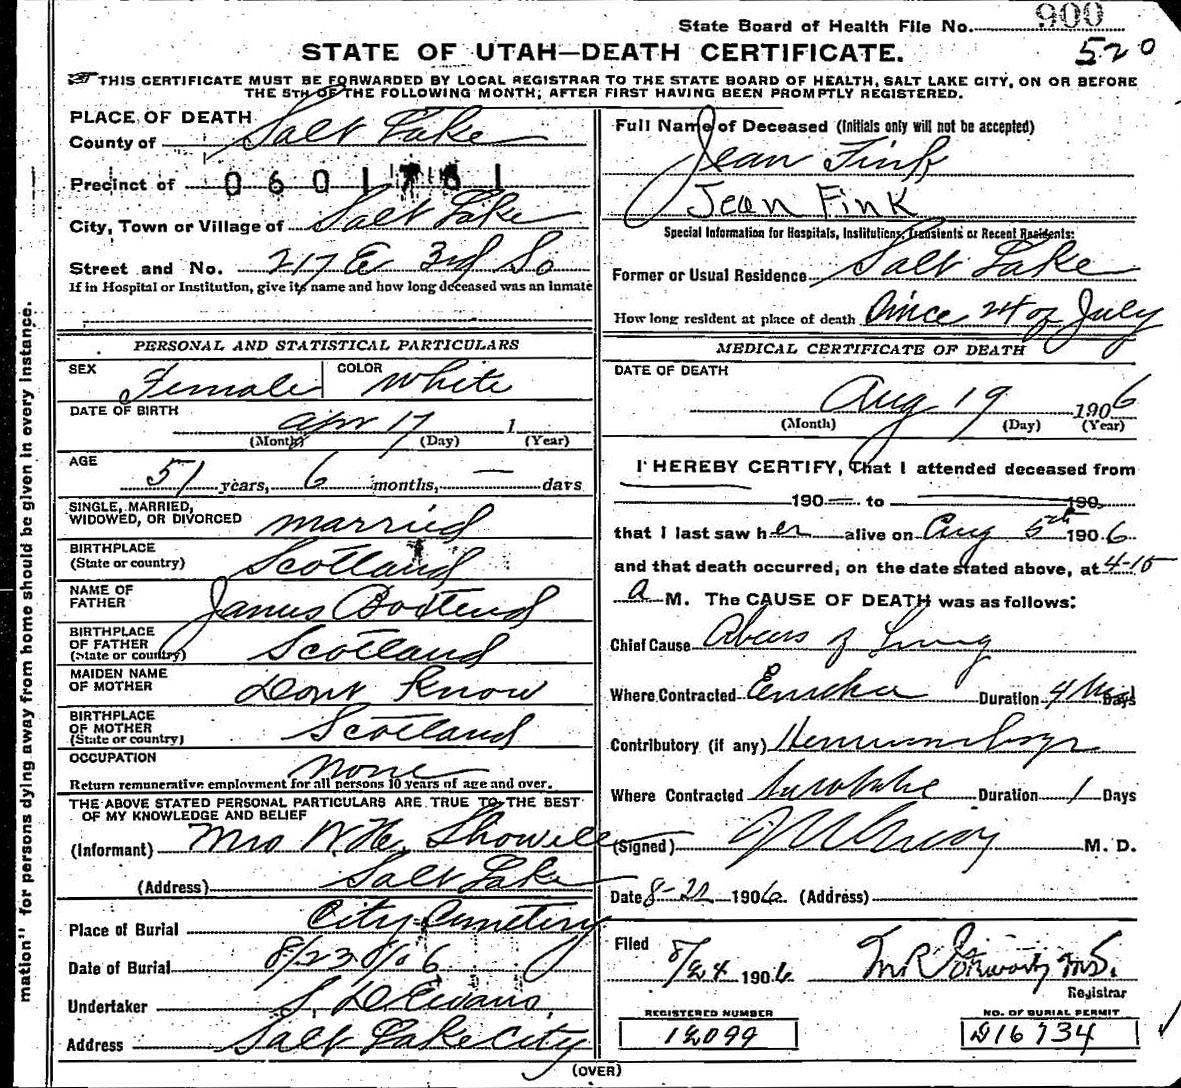 State Board of Health File No. 900
520
STATE OF UTAH—DEATH CERTIFICATE.
THIS CERTIFICATE MUST BE FORWARDED BY LOCAL REGISTRAR TO THE STATE BOARD OF HEALTH, SALT LAKE CITY, ON OR BEFORE
THE 5TH OF THE FOLLOWING MONTH; AFTER FIRST HAVING BEEN PROMPTLY REGISTERED.
mation" for persons dying away from home should be given in every instance.
PLACE OF DEATH
County of Salt Lake
Precinct of 0601
City, Town or Village of Salt Lake
Street and No. 217 E 3rd So
If in Hospital or Institution, give its name and how long deceased was an inmate
PERSONAL AND STATISTICAL PARTICULARS
SEX Female COLOR White
DATE OF BIRTH Apr 17 1
(Month) (Day) (Year)
AGE 51 years, 6 months, — days
SINGLE, MARRIED,
WIDOWED, OR DIVORCED married
BIRTHPLACE
(State or country) Scotland
NAME OF
FATHER James
BIRTHPLACE
OF FATHER
(State or country) Scotland
MAIDEN NAME
OF MOTHER Dont Know
BIRTHPLACE
OF MOTHER
(State or country) Scotland
OCCUPATION none
Return remunerative employment for all persons 10 years of age and over.
THE ABOVE STATED PERSONAL PARTICULARS ARE TRUE TO THE BEST
OF MY KNOWLEDGE AND BELIEF
(Informant) Mrs W. H. Showell
(Address) Salt Lake
Place of Burial City Cemetery
Date of Burial 8/23 06
Undertaker S. D. Evans,
Address Salt Lake City
Full Name of Deceased (Initials only will not be accepted)
Jean Fink
Jean Fink
Special Information for Hospitals, Institutions, Transients or Recent Residents:
Former or Usual Residence Salt Lake
How long resident at place of death Since 24 of July
MEDICAL CERTIFICATE OF DEATH
DATE OF DEATH
Aug 19 1906
(Month) (Day) (Year)
I HEREBY CERTIFY, That I attended deceased from
190 — to 190
that I last saw her alive on Aug 5th 1906
and that death occurred, on the date stated above, at 4-15
A M. The CAUSE OF DEATH was as follows:
Chief Cause Abcess of Lung
Where Contracted Eureka Duration 4 Days
Contributory (if any)
Where Contracted Duration 1 Days
(Signed) M. D.
Date 8-22 1906. (Address)
Filed 8/24 1906
Registrar
REGISTERED NUMBER
NO. OF BURIAL PERMIT
(OVER)